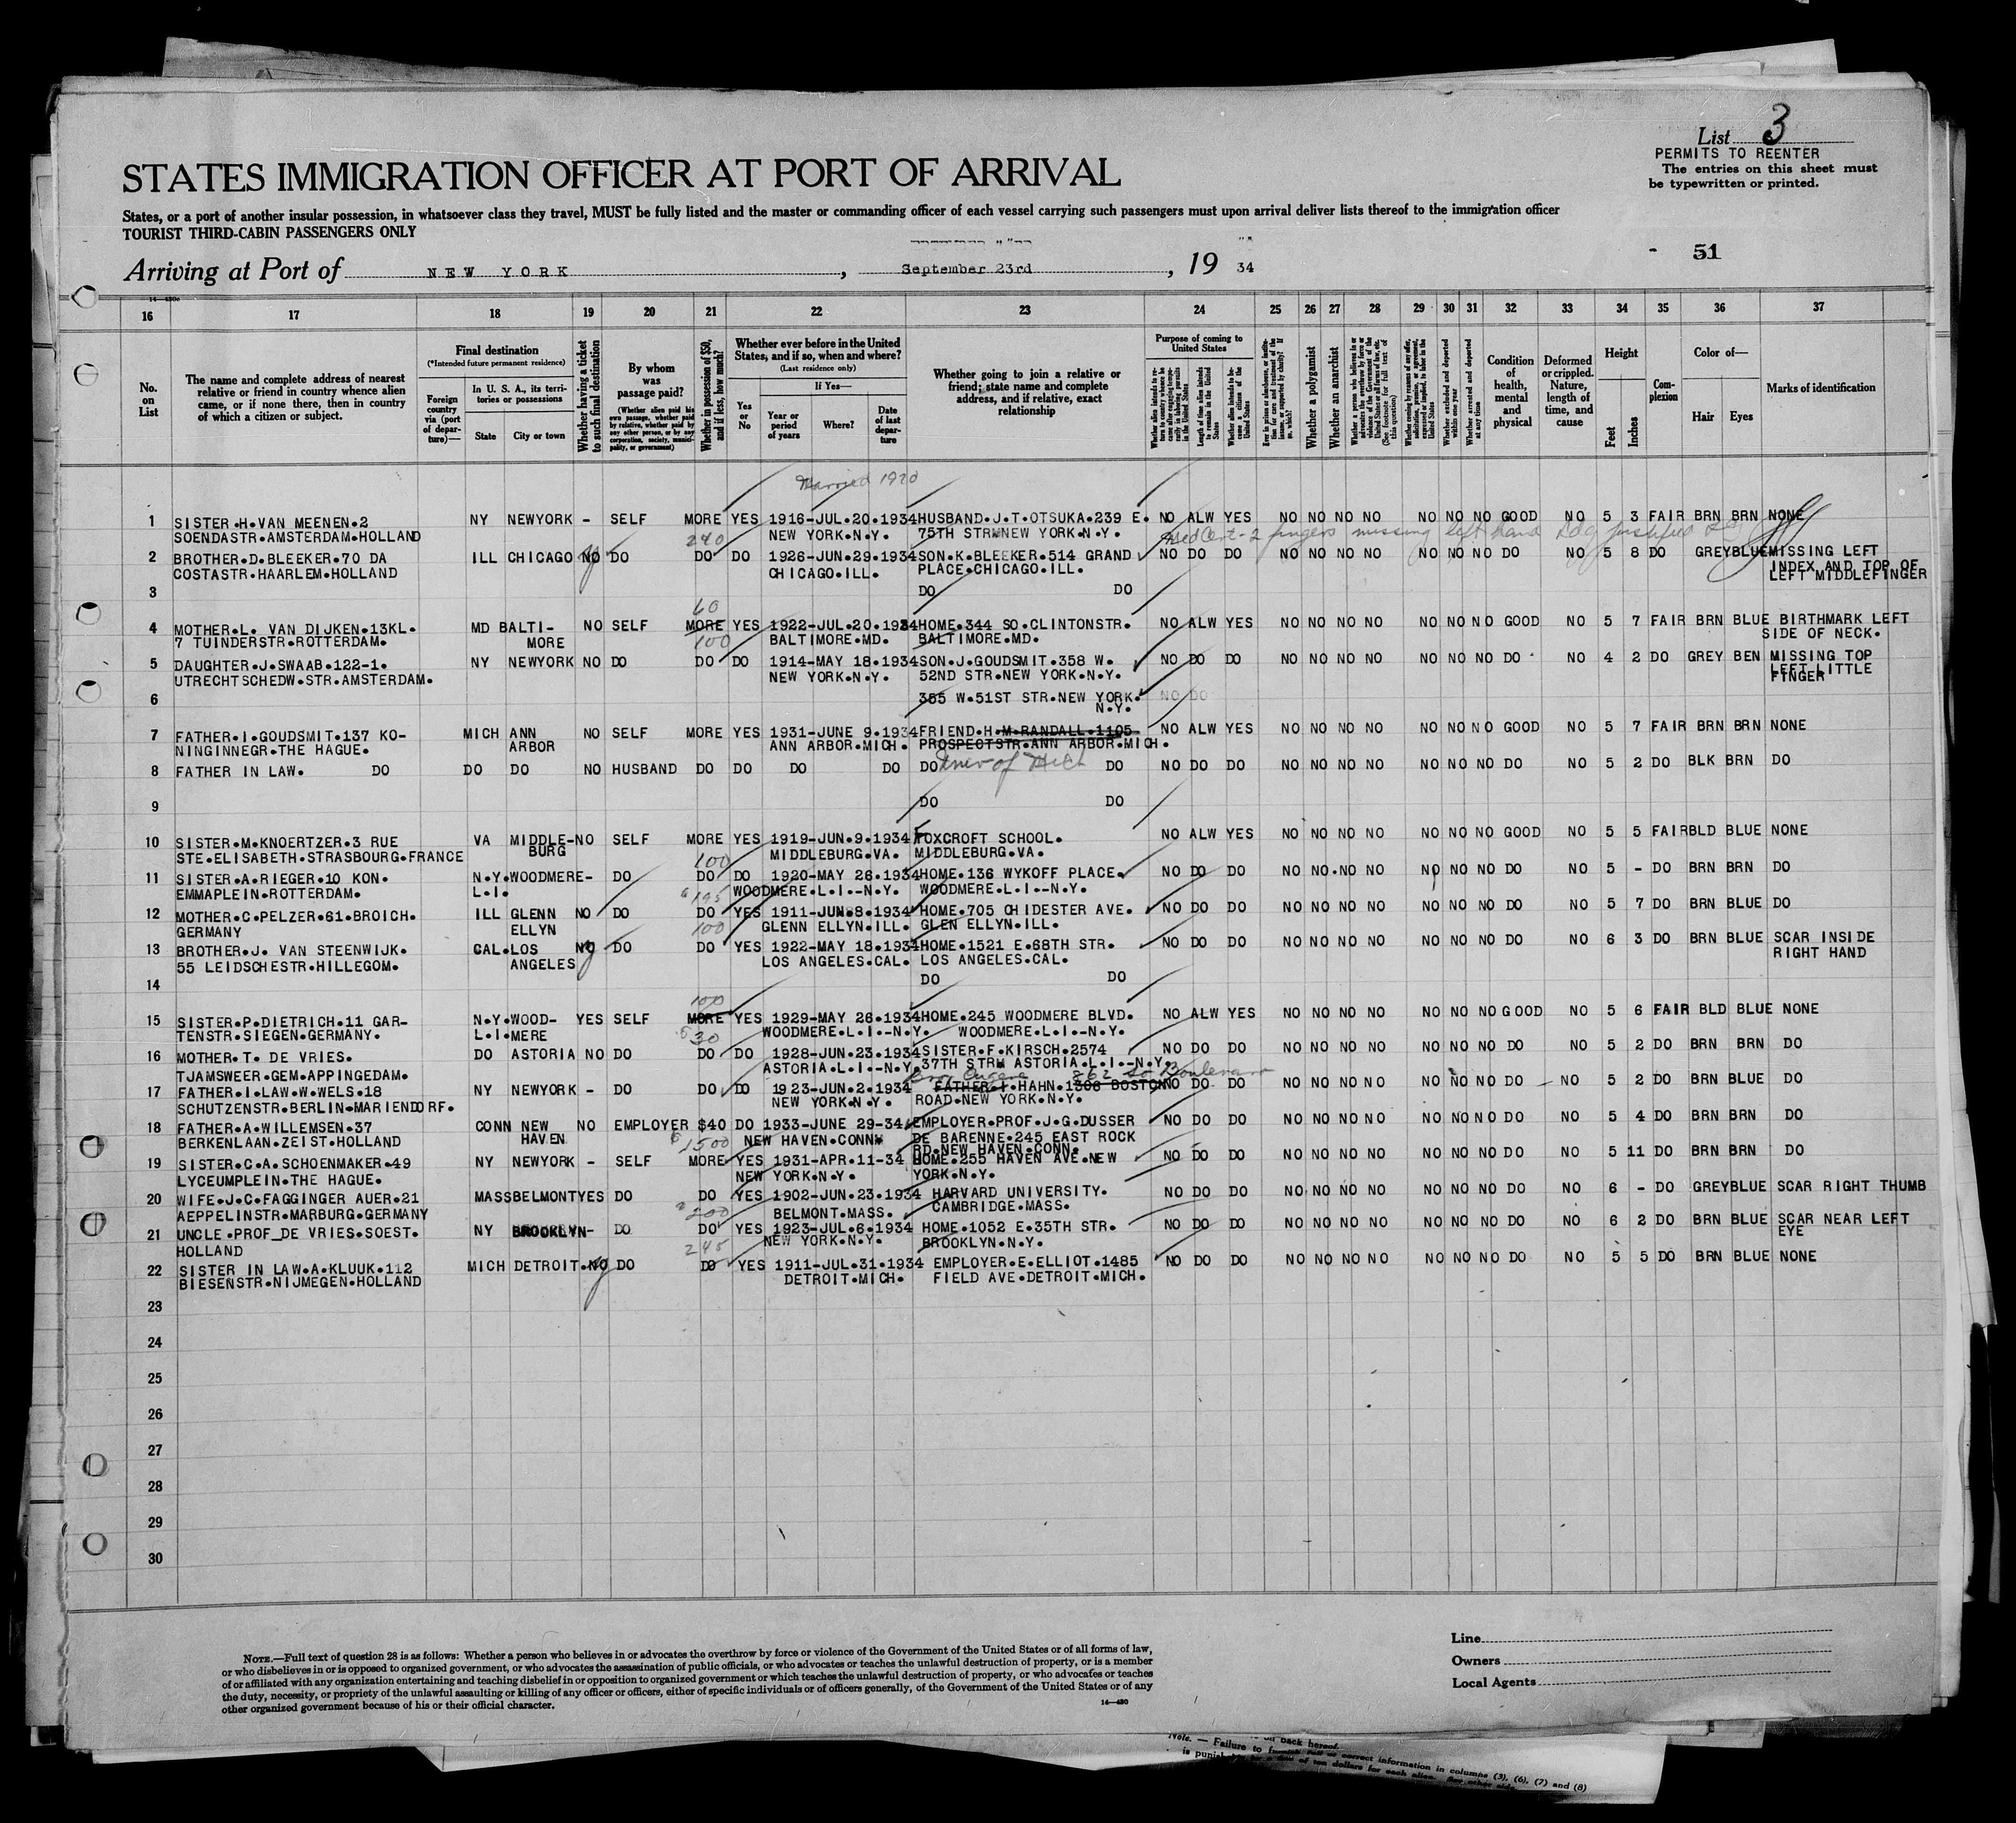 List 3
PERMITS TO REENTER
The entries on this sheet must
be typewritten or printed.
STATES IMMIGRATION OFFICER AT PORT OF ARRIVAL
States, or a port of another insular possession, in whatsoever class they travel, MUST be fully listed and the master or commanding officer of each vessel carrying such passengers must upon arrival deliver lists thereof to the immigration officer
TOURIST THIRD-CABIN PASSENGERS ONLY
51
Arriving at Port of NEW YORK, September 23rd, 19 34
16 17 18 19 20 21 22 23 24 25 26 27 28 29 30 31 32 33 34 35 36 37
No. on List
The name and complete address of nearest relative or friend in country whence alien came, or if none there, then in country of which a citizen or subject.
Final destination
(*Intended future permanent residence)
Foreign country via (port of departure)—
In U. S. A., its territories or possessions
State
City or town
Whether having a ticket to such final destination
By whom was passage paid?
(Whether alien paid his own passage, whether paid by relative, whether paid by any other person, or by any corporation, society, municipality, or government)
Whether in possession of $50, and if less, how much?
Whether ever before in the United States, and if so, when and where?
(Last residence only)
Yes or No
If Yes—
Year or period of years
Where?
Date of last departure
Whether going to join a relative or friend; state name and complete address, and if relative, exact relationship
Purpose of coming to United States
Length of time alien intends to remain in the United States
Whether alien intends to become a citizen of the United States
Whether a polygamist
Whether an anarchist
Whether excluded and deported within one year
Whether arrested and deported at any time
Condition of health, mental and physical
Deformed or crippled. Nature, length of time, and cause
Height
Feet
Inches
Complexion
Color of—
Hair
Eyes
Marks of identification
Married 1920
1 SISTER.H.VAN MEENEN.2 NY NEWYORK - SELF MORE YES 1916-JUL.20.1934 HUSBAND.J.T.OTSUKA.239 E. NO ALW YES NO NO NO NO NO NO NO GOOD NO 5 3 FAIR BRN BRN NONE
SOENDASTR.AMSTERDAM.HOLLAND 240 NEW YORK.N.Y. 75TH STR.NEW YORK.N.Y. 2 fingers missing left hand
2 BROTHER.D.BLEEKER.70 DA ILL CHICAGO NO DO DO DO 1926-JUN.29.1934 SON.K.BLEEKER.514 GRAND NO DO DO NO NO NO NO NO NO NO DO NO 5 8 DO GREY BLUE MISSING LEFT
COSTASTR.HAARLEM.HOLLAND CHICAGO.ILL. PLACE.CHICAGO.ILL. INDEX AND TOP OF
LEFT MIDDLEFINGER
3 DO DO
60
4 MOTHER.L. VAN DIJKEN.13KL. MD BALTI- NO SELF MORE YES 1922-JUL.20.1934 HOME.344 SO.CLINTONSTR. NO ALW YES NO NO NO NO NO NO NO GOOD NO 5 7 FAIR BRN BLUE BIRTHMARK LEFT
7 TUINDERSTR.ROTTERDAM. MORE 100 BALTIMORE.MD. BALTIMORE.MD. SIDE OF NECK.
5 DAUGHTER.J.SWAAB.122-1. NY NEWYORK NO DO DO DO 1914-MAY 18.1934 SON.J.GOUDSMIT.358 W. NO DO DO NO NO NO NO NO NO NO DO NO 4 2 DO GREY BEN MISSING TOP
UTRECHTSCHEDW.STR.AMSTERDAM. NEW YORK.N.Y. 52ND STR.NEW YORK.N.Y. LEFT LITTLE
FINGER
6 355 W.51ST STR.NEW YORK. NO DO
N.Y.
7 FATHER.I.GOUDSMIT.137 KO- MICH ANN NO SELF MORE YES 1931-JUNE 9.1934 FRIEND.H.M.RANDALL.1105 NO ALW YES NO NO NO NO NO NO NO GOOD NO 5 7 FAIR BRN BRN NONE
NINGINNEGR.THE HAGUE. ARBOR ANN ARBOR.MICH. PROSPECTSTR.ANN ARBOR.MICH.
8 FATHER IN LAW. DO DO DO NO HUSBAND DO DO DO DO DO Univ of Mich DO NO DO DO NO NO NO NO NO NO NO DO NO 5 2 DO BLK BRN DO
9 DO DO
10 SISTER.M.KNOERTZER.3 RUE VA MIDDLE- NO SELF MORE YES 1919-JUN.9.1934 FOXCROFT SCHOOL. NO ALW YES NO NO NO NO NO NO NO GOOD NO 5 5 FAIR BLD BLUE NONE
STE.ELISABETH.STRASBOURG.FRANCE BURG 100 MIDDLEBURG.VA. MIDDLEBURG.VA.
11 SISTER.A.RIEGER.10 KON. N.Y. WOODMERE- DO DO DO 1920-MAY 26.1934 HOME.136 WYKOFF PLACE. NO DO DO NO NO NO NO NO NO NO DO NO 5 - DO BRN BRN DO
EMMAPLEIN.ROTTERDAM. L.I. 195 WOODMERE.L.I.-N.Y. WOODMERE.L.I.-N.Y.
12 MOTHER.C.PELZER.61.BROICH. ILL GLENN NO DO DO YES 1911-JUN.8.1934 HOME.705 CHIDESTER AVE. NO DO DO NO NO NO NO NO NO NO DO NO 5 7 DO BRN BLUE DO
GERMANY ELLYN 100 GLENN ELLYN.ILL. GLEN ELLYN.ILL.
13 BROTHER.J. VAN STEENWIJK. CAL. LOS NO DO DO YES 1922-MAY 18.1934 HOME.1521 E.68TH STR. NO DO DO NO NO NO NO NO NO NO DO NO 6 3 DO BRN BLUE SCAR INSIDE
55 LEIDSCHESTR.HILLEGOM. ANGELES LOS ANGELES.CAL. LOS ANGELES.CAL. RIGHT HAND
14 DO DO
100
15 SISTER.P.DIETRICH.11 GAR- N.Y. WOOD- YES SELF MORE YES 1929-MAY 26.1934 HOME.245 WOODMERE BLVD. NO ALW YES NO NO NO NO NO NO NO GOOD NO 5 6 FAIR BLD BLUE NONE
TENSTR.SIEGEN.GERMANY. L.I. MERE 30 WOODMERE.L.I.-N.Y. WOODMERE.L.I.-N.Y.
16 MOTHER.T. DE VRIES. DO ASTORIA NO DO DO DO 1928-JUN.23.1934 SISTER.F.KIRSCH.2574 NO DO DO NO NO NO NO NO NO NO DO NO 5 2 DO BRN BRN DO
TJAMSWEER.GEM.APPINGEDAM. ASTORIA.L.I.-N.Y. 37TH STR. ASTORIA.L.I.-N.Y.
862 So Boulevard
17 FATHER.I.LAW.W.WELS.18 NY NEWYORK - DO DO DO 1923-JUN.2.1934 FATHER.I.HAHN.1308 BOSTON NO DO DO NO NO NO NO NO NO NO DO NO 5 2 DO BRN BLUE DO
SCHUTZENSTR.BERLIN.MARIENDORF. NEW YORK.N.Y. ROAD.NEW YORK.N.Y.
18 FATHER.A.WILLEMSEN.37 CONN NEW NO EMPLOYER $40 DO 1933-JUNE 29-34 EMPLOYER.PROF.J.G.DUSSER NO DO DO NO NO NO NO NO NO NO DO NO 5 4 DO BRN BRN DO
BERKENLAAN.ZEIST.HOLLAND HAVEN 1500 NEW HAVEN.CONN. DE BARENNE.245 EAST ROCK
RD.NEW HAVEN.CONN.
19 SISTER.C.A.SCHOENMAKER.49 NY NEWYORK - SELF MORE YES 1931-APR.11-34 HOME.255 HAVEN AVE.NEW NO DO DO NO NO NO NO NO NO NO DO NO 5 11 DO BRN BRN DO
LYCEUMPLEIN.THE HAGUE. NEW YORK.N.Y. YORK.N.Y.
20 WIFE.J.C.FAGGINGER AUER.21 MASS BELMONT YES DO DO YES 1902-JUN.23.1934 HARVARD UNIVERSITY. NO DO DO NO NO NO NO NO NO NO DO NO 6 - DO GREY BLUE SCAR RIGHT THUMB
AEPPELINSTR.MARBURG.GERMANY 200 BELMONT.MASS. CAMBRIDGE.MASS.
21 UNCLE.PROF.DE VRIES.SOEST. NY BROOKLYN- DO DO YES 1923-JUL.6.1934 HOME.1052 E.35TH STR. NO DO DO NO NO NO NO NO NO NO DO NO 6 2 DO BRN BLUE SCAR NEAR LEFT
HOLLAND 245 NEW YORK.N.Y. BROOKLYN.N.Y. EYE
22 SISTER IN LAW.A.KLUUK.112 MICH DETROIT. NO DO DO YES 1911-JUL.31.1934 EMPLOYER.E.ELLIOT.1485 NO DO DO NO NO NO NO NO NO NO DO NO 5 5 DO BRN BLUE NONE
BIESENSTR.NIJMEGEN.HOLLAND DETROIT.MICH. FIELD AVE.DETROIT.MICH.
23
24
25
26
27
28
29
30
NOTE.—Full text of question 28 is as follows: Whether a person who believes in or advocates the overthrow by force or violence of the Government of the United States or of all forms of law,
or who disbelieves in or is opposed to organized government, or who advocates the assassination of public officials, or who advocates or teaches the unlawful destruction of property, or is a member
of or affiliated with any organization entertaining and teaching disbelief in or opposition to organized government or which teaches the unlawful destruction of property, or who advocates or teaches
the duty, necessity, or propriety of the unlawful assaulting or killing of any officer or officers, either of specific individuals or of officers generally, of the Government of the United States or of any
other organized government because of his or their official character.
14—430
Line
Owners
Local Agents
Note. — Failure to furnish full or correct information in columns (3), (6), (7) and (8)